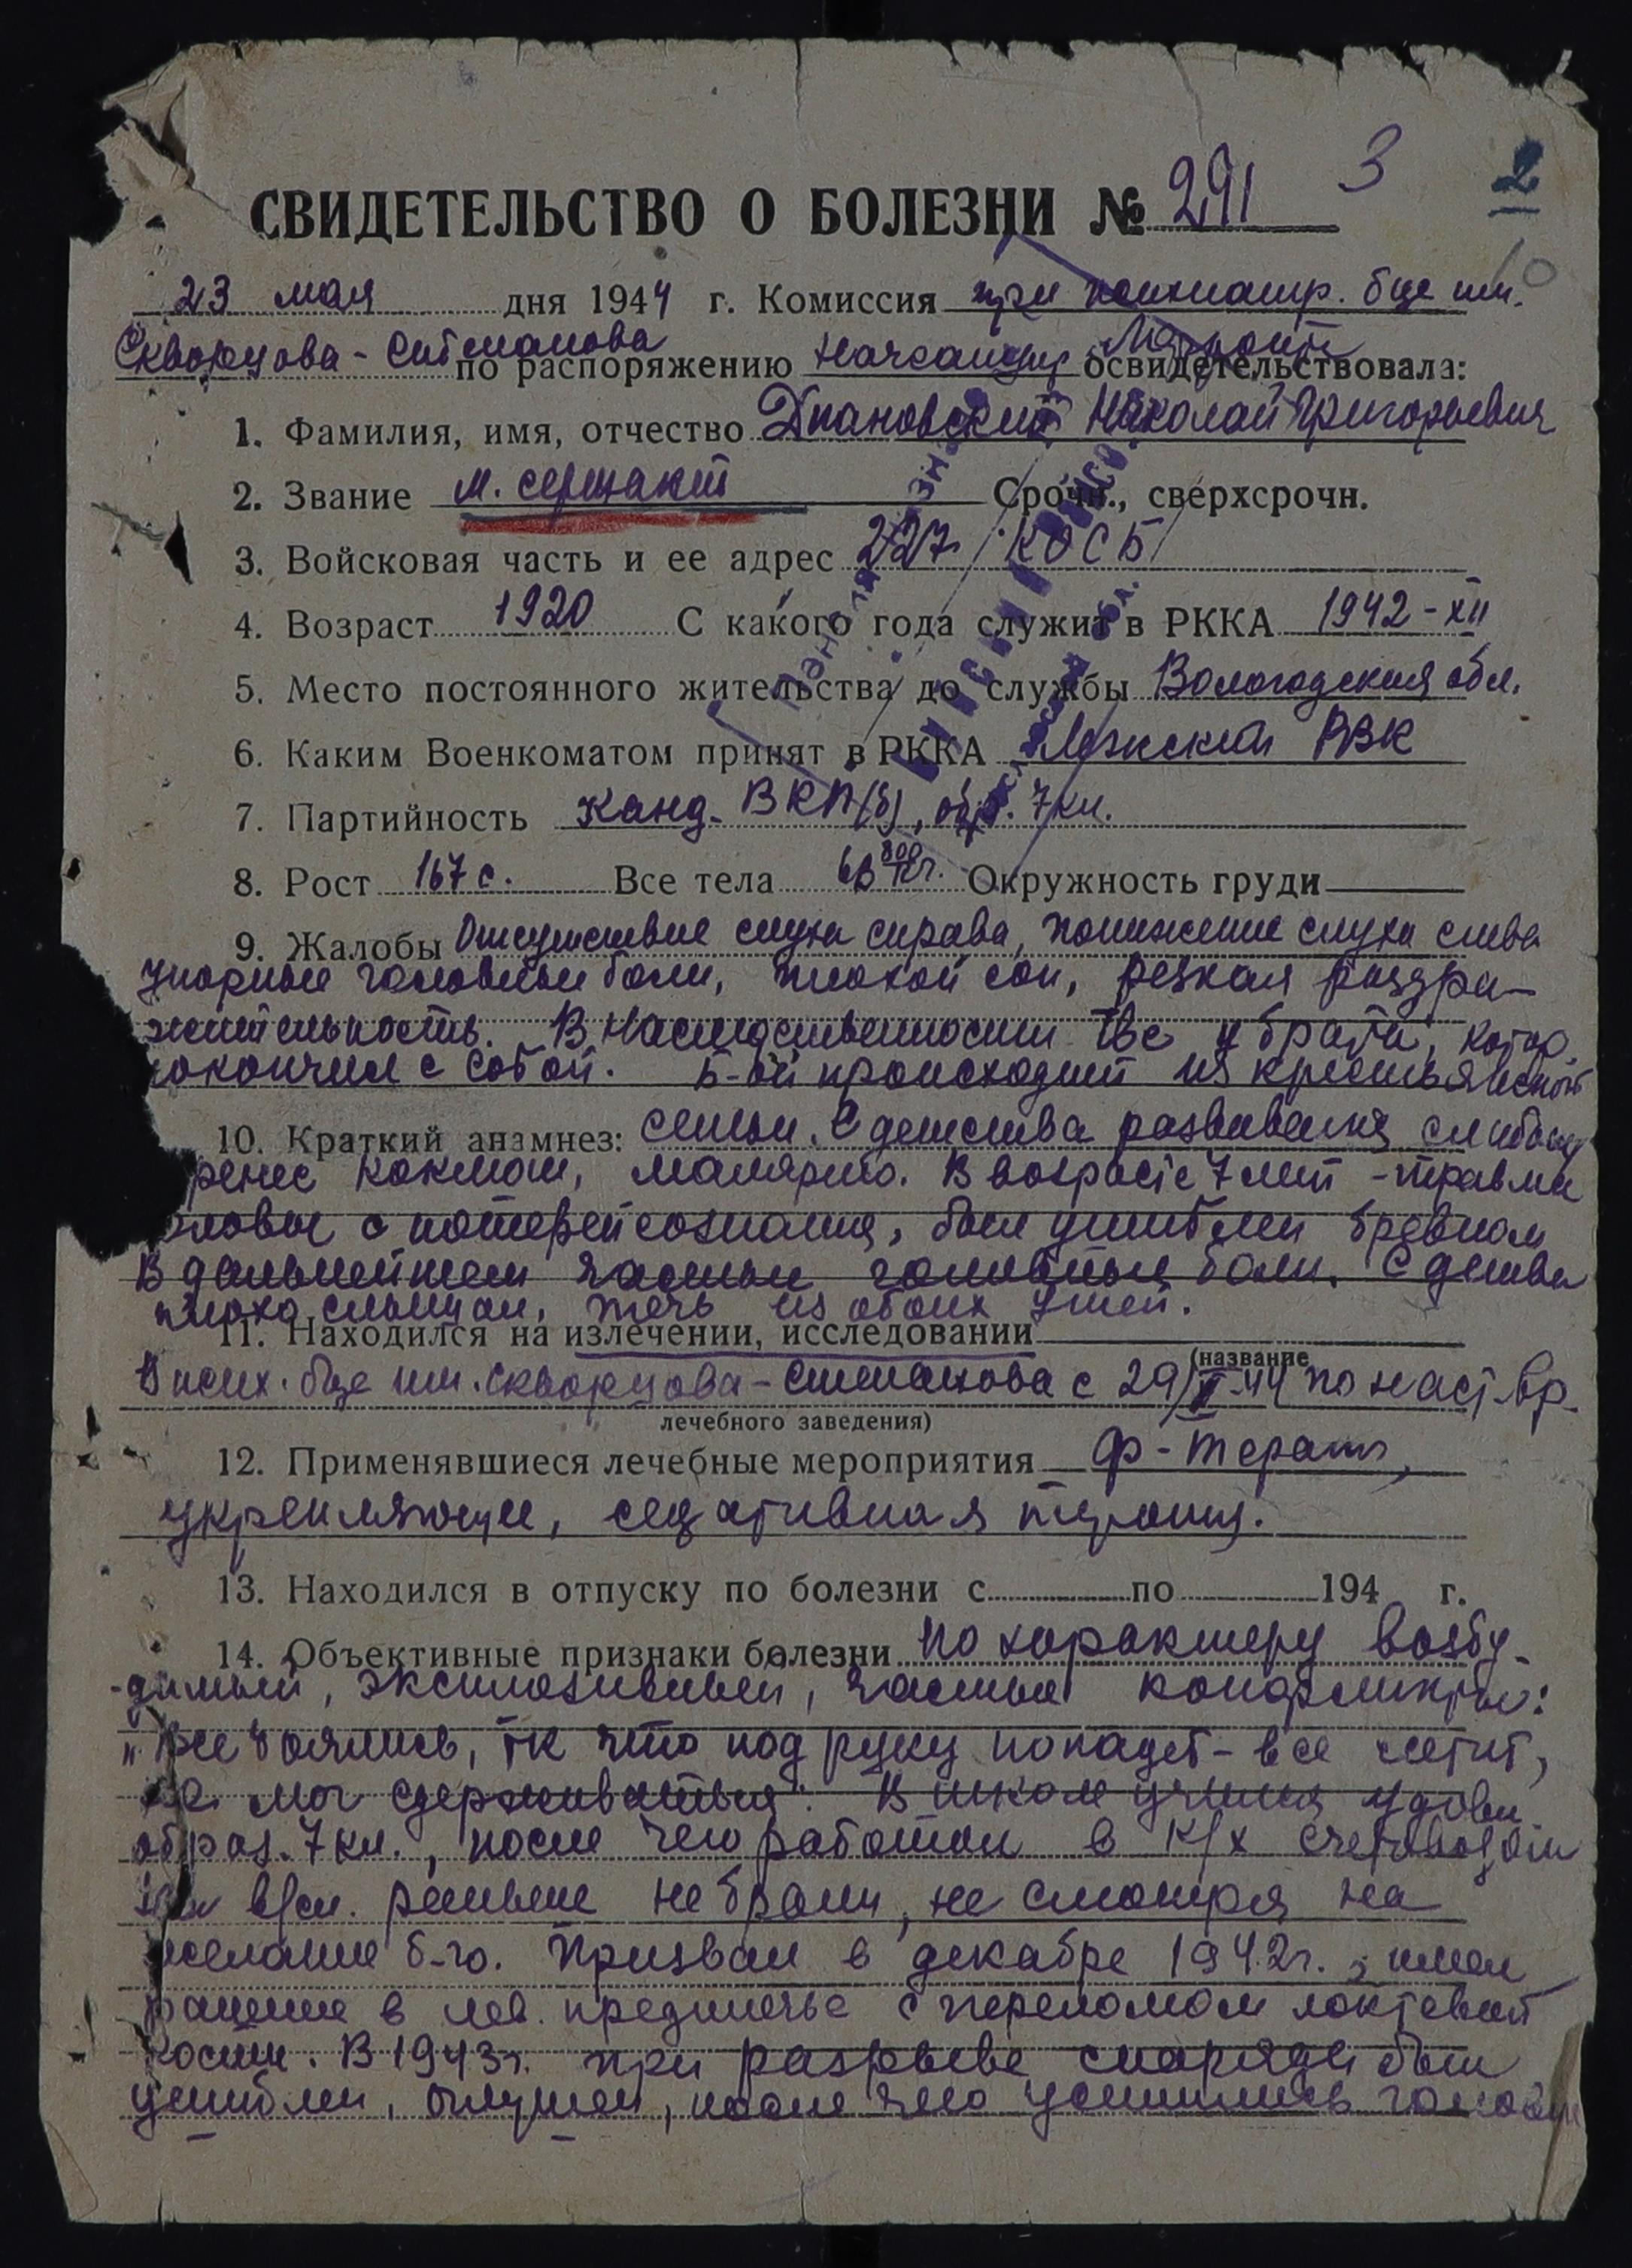 3 2
СВИДЕТЕЛЬСТВО О БОЛЕЗНИ № 291
10
23 мая дня 1944 г. Комиссия при психиатр. б-це им.
Скворцова-Степанова по распоряжению Начсанупр освидетельствовала:
1. Фамилия, имя, отчество Николай Григорьевич
2. Звание м. сержант Срочн., сверхсрочн.
3. Войсковая часть и ее адрес 227 КОСБ
4. Возраст 1920 С какого года служит в РККА 1942-XII
5. Место постоянного жительства до службы Вологодская обл.
6. Каким Военкоматом принят в РККА РВК
7. Партийность Канд. ВКП(б), обр. 7 кл.
8. Рост 167 с. Все тела 800 кг. Окружность груди
9. Жалобы Отсутствие слуха справа, понижение слуха слева
упорные головные боли, плохой сон, резкая раздра-
жительность. В наследственности два брата, котор.
покончили с собой. Б-ой происходит из крестьянской
10. Краткий анамнез: семьи. С детства развивался слабым
ренес коклюш, малярию. В возрасте 7 лет - травма
оловы с потерей сознания, был ушиблен бревном
В дальнейшем частые головные боли. С детства
плохо слышал, течь из обоих ушей.
11. Находился на излечении, исследовании
(название
В псих. б-це им. Скворцова-Степанова с 29 44 по наст. вр.
лечебного заведения)
12. Применявшиеся лечебные мероприятия ф-терап,
укрепляющее, седативная терапия.
13. Находился в отпуску по болезни с по 194 г.
14. Объективные признаки болезни По характеру возбу-
-димый, эксплозивный, частые конфликты:
„Все боялись, тк что под руку попадет - все летит,
не мог сдерживаться". В школе учился удовл.
образ. 7 кл., после чего работал в к/х счетоводом
На в/сл. раньше не брали, не смотря на
желание б-го. Призван в декабре 1942 г., имел
ранение в лев. предплечье с переломом локтевой
кости. В 1943 г. при разрыве снаряда был
ушиблен, оглушен, после чего усилились головные